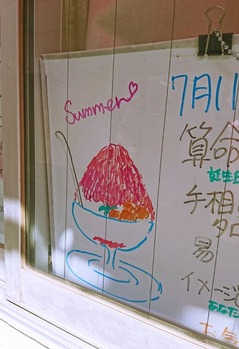 Summer♡
7月11
算命
誕生日
手相
タロ
易
イメージ
あなた